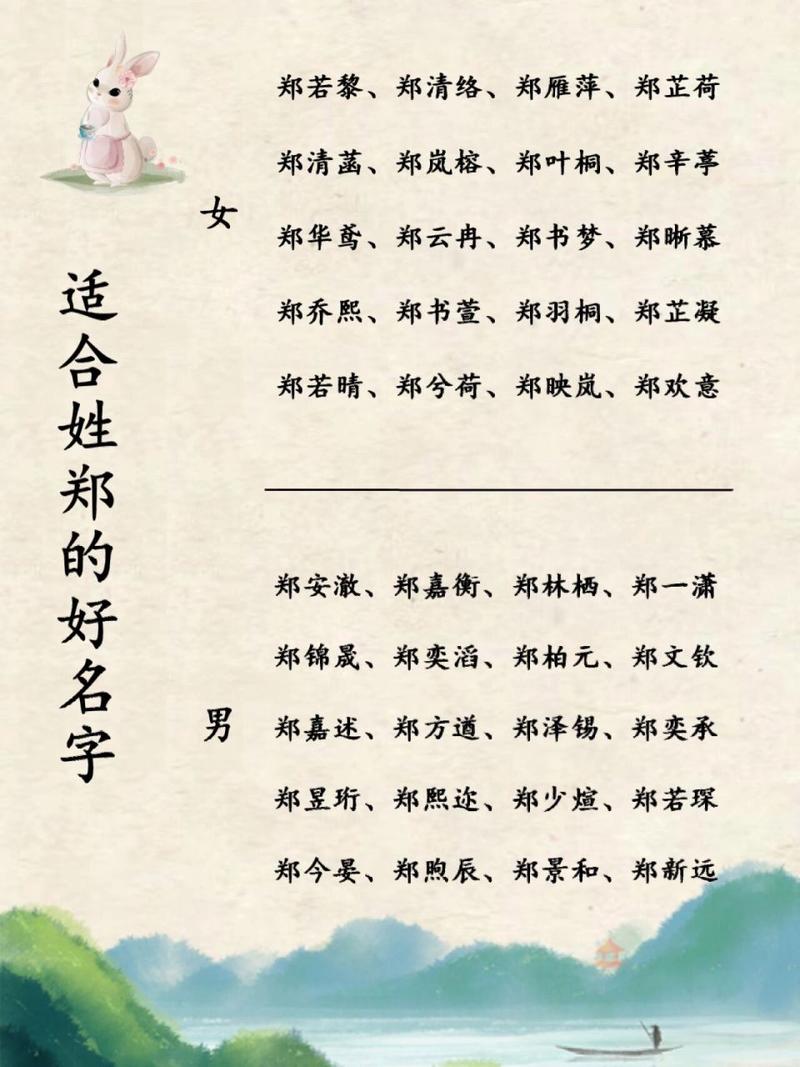 适合姓郑的好名字
女
郑若黎、郑清络、郑雁萍、郑芷荷
郑清菡、郑岚榕、郑叶桐、郑辛葶
郑华鸢、郑云冉、郑书梦、郑晰慕
郑乔熙、郑书萱、郑羽桐、郑芷凝
郑若晴、郑兮荷、郑映岚、郑欢意
男
郑安澈、郑嘉衡、郑林栖、郑一潇
郑锦晟、郑奕滔、郑柏元、郑文钦
郑嘉述、郑方遒、郑泽锡、郑奕承
郑昱珩、郑熙迩、郑少煊、郑若琛
郑今晏、郑煦辰、郑景和、郑新远